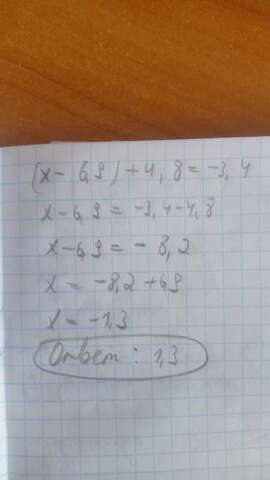 (x - 6,9) + 4,8 = -3,4
x - 6,9 = -3,4 - 4,8
x - 6,9 = - 8,2
x = -8,2 + 6,9
x = -1,3
Ответ : 1,3